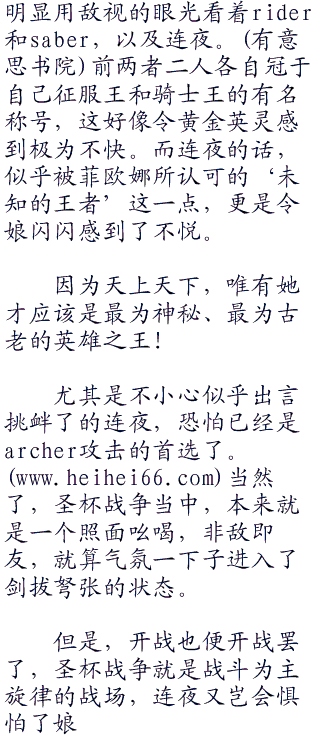 明显用敌视的眼光看着rider
和saber，以及连夜。(有意
思书院)前两者二人各自冠于
自己征服王和骑士王的有名
称号，这好像令黄金英灵感
到极为不快。而连夜的话，
似乎被菲欧娜所认可的‘未
知的王者’这一点，更是令
娘闪闪感到了不悦。
因为天上天下，唯有她
才应该是最为神秘、最为古
老的英雄之王！
尤其是不小心似乎出言
挑衅了的连夜，恐怕已经是
archer攻击的首选了。
(www.heihei66.com)当然
了，圣杯战争当中，本来就
是一个照面吆喝，非敌即
友，就算气氛一下子进入了
剑拔弩张的状态。
但是，开战也便开战罢
了，圣杯战争就是战斗为主
旋律的战场，连夜又岂会惧
怕了娘